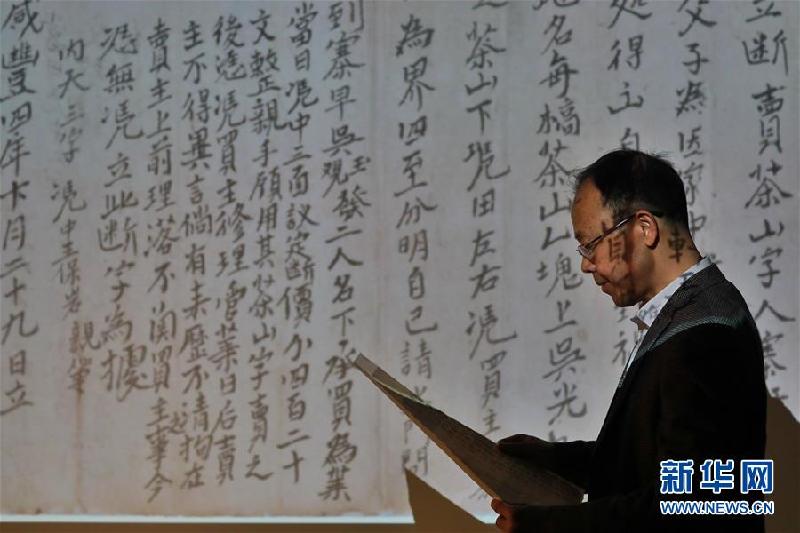 立断賣茶山字人寨
父子為因家中
处得土自
地名每橋茶山乙塊上吳光
茶山下凭田左右凭買主
為界四至分明自己請
到寨早吳觀玉發二人名下承買為業
當日凭中三面議定断價小四百二十
文整親手領用其茶山字賣之
後逸凭買主修理管業日后賣
主不得異言倘有来歷不清拘在
賣主上前理落不関買主事今
恐無凭立此断字為據
内天三字 凭中
親筆
咸豐四年十月二十九日立
新华网
WWW.NEWS.CN